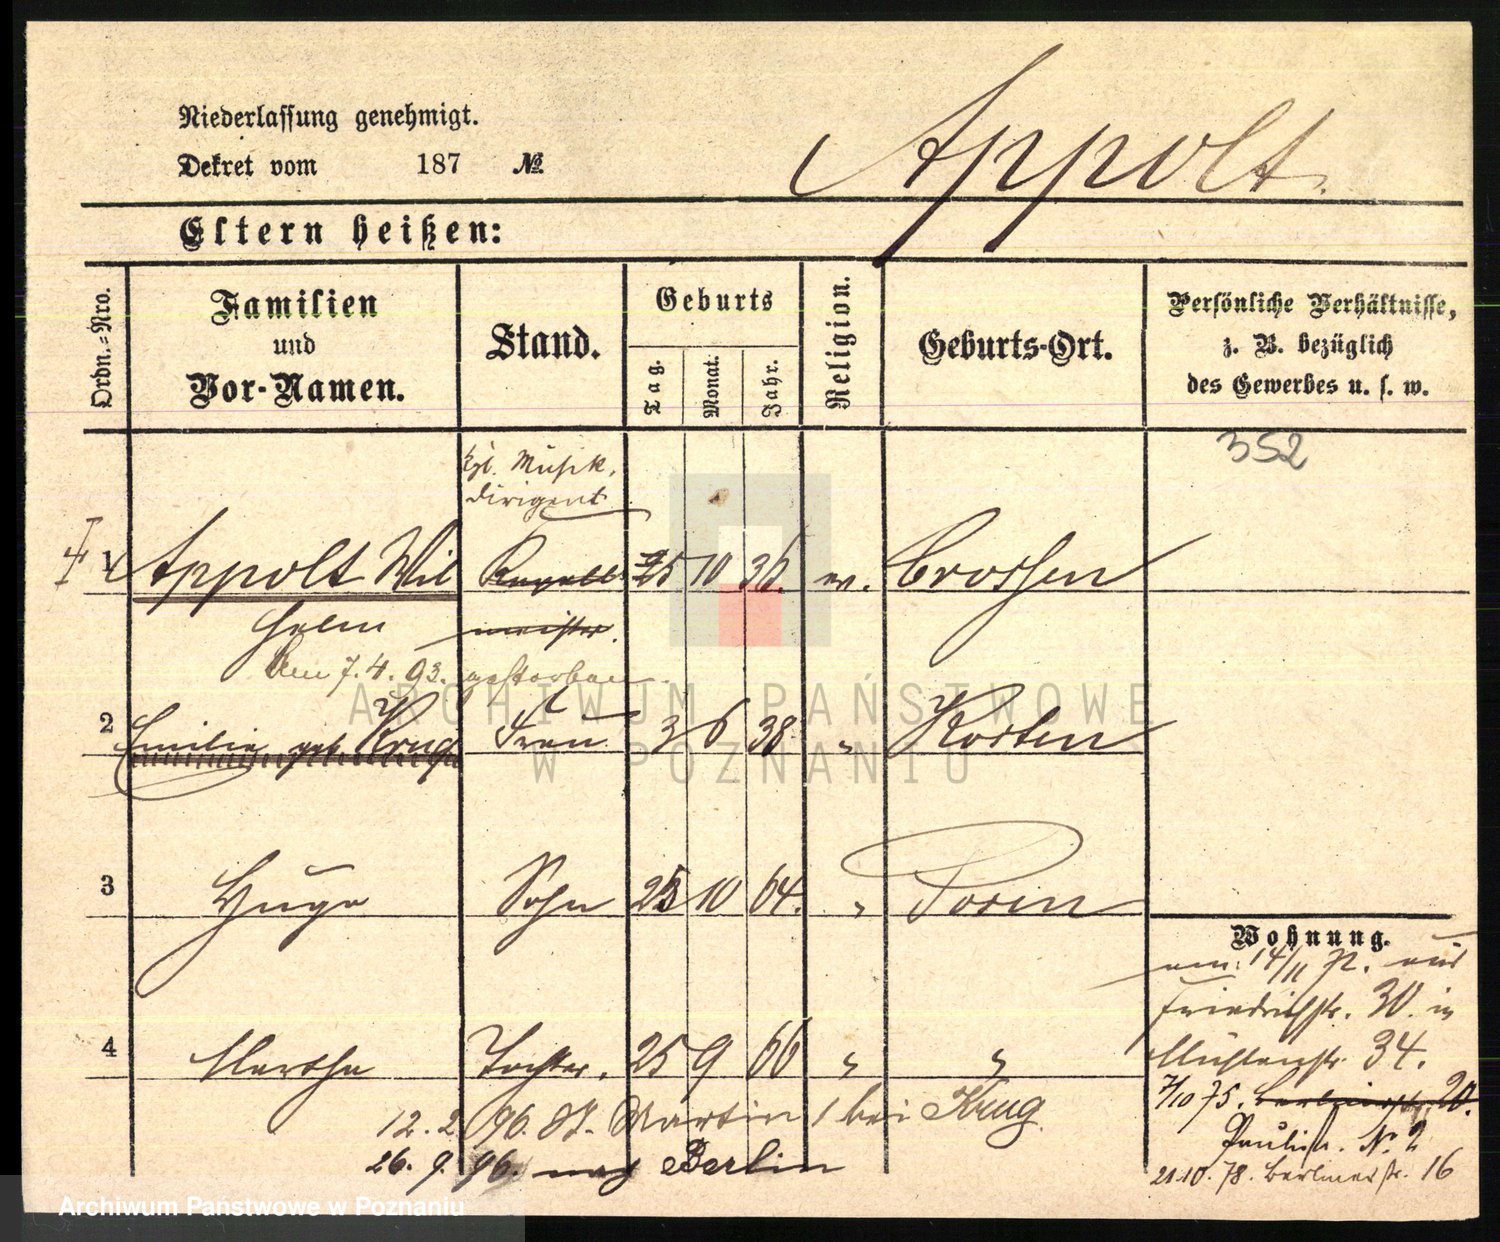 Niederlassung genehmigt.
Dekret vom 187 №
Appolt.
Eltern heißen:
Ordn.=Nro.
Familien
und
Vor-Namen.
Stand.
Geburts
Tag.
Monat.
Jahr.
Religion.
Geburts-Ort.
Persönliche Verhältnisse,
z. B. bezüglich
des Gewerbes u. s. w.
352
kgl. Musik.
dirigent
1 Appolt Wil Kapell 25 10 36. ev. Crossen
helm meister.
Am 7.4.93. gestorben.
2 Emilie geb. Krug Frau 3 6 38 " Kosten
3 Hugo Sohn 25 10 64. " Posen
4 Martha Tochter. 25 9 66 " "
12. 2. 96. St. Martin 1 bei Krug.
26. 9. 96. nach Berlin
Wohnung.
am: 14/11 72. aus
Friedrichstr. 30. in
Mühlenstr. 34.
7/10 75. Berlinerstr. 20.
Paulistr. No. 2
21.10.78. Berlinerstr. 16
ARCHIWUM PAŃSTWOWE
W POZNANIU
Archiwum Państwowe w Poznaniu